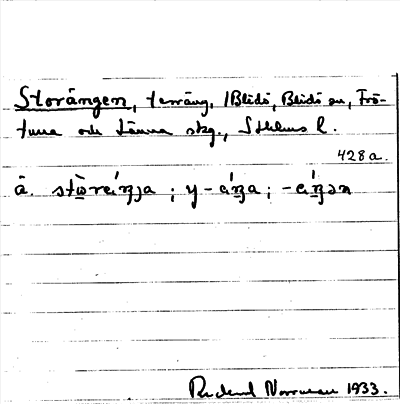 Storängen, terräng, /Blidö, Blidö sn, Frö-
tuna och Länna skg., Sthlms l.
428a.
ä. stòreíŋja ; y-áŋa ; -eíŋən
Rickard Norrman 1933.